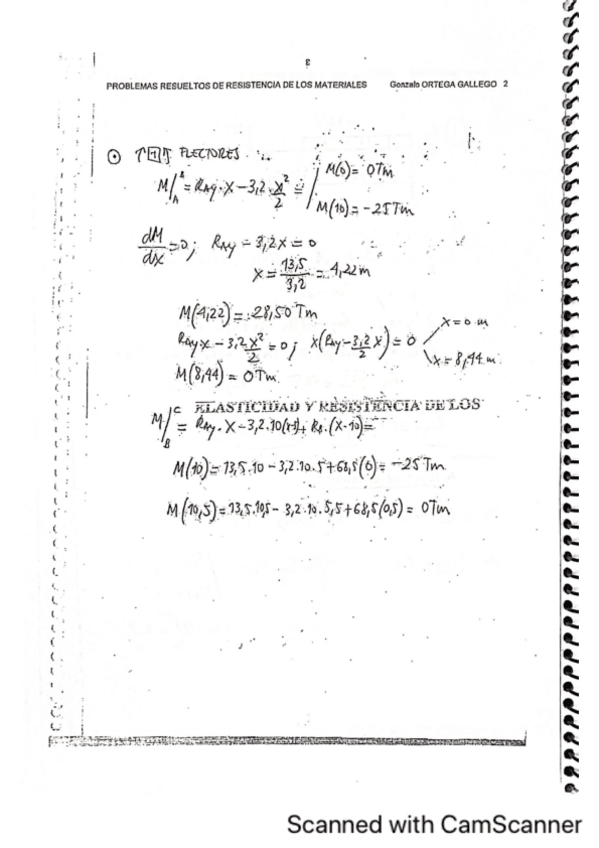 3
PROBLEMAS RESUELTOS DE RESISTENCIA DE LOS MATERIALES Gonzalo ORTEGA GALLEGO 2
FLECTORES
M/ᴮₐ = RAy·X – 3,2·x²/2 = M(0) = 0Tm
M(10) = –25Tm
dM/dx = 0; RAy – 3,2x = 0
x = 13,5/3,2 = 4,22m
M(4,22) = 28,50 Tm
RAy x – 3,2 x²/2 = 0; x(RAy – 3,2/2 x) = 0 x = 0 m
x = 8,44 m
M(8,44) = 0Tm
ELASTICIDAD Y RESISTENCIA DE LOS
M/ = RAy·X – 3,2·10 (x-10) =
M(10) = 13,5·10 – 3,2·10·5 + 68,5(0) = –25 Tm
M(10,5) = 13,5·10,5 – 3,2·10·5,5 + 68,5(0,5) = 0Tm
Scanned with CamScanner